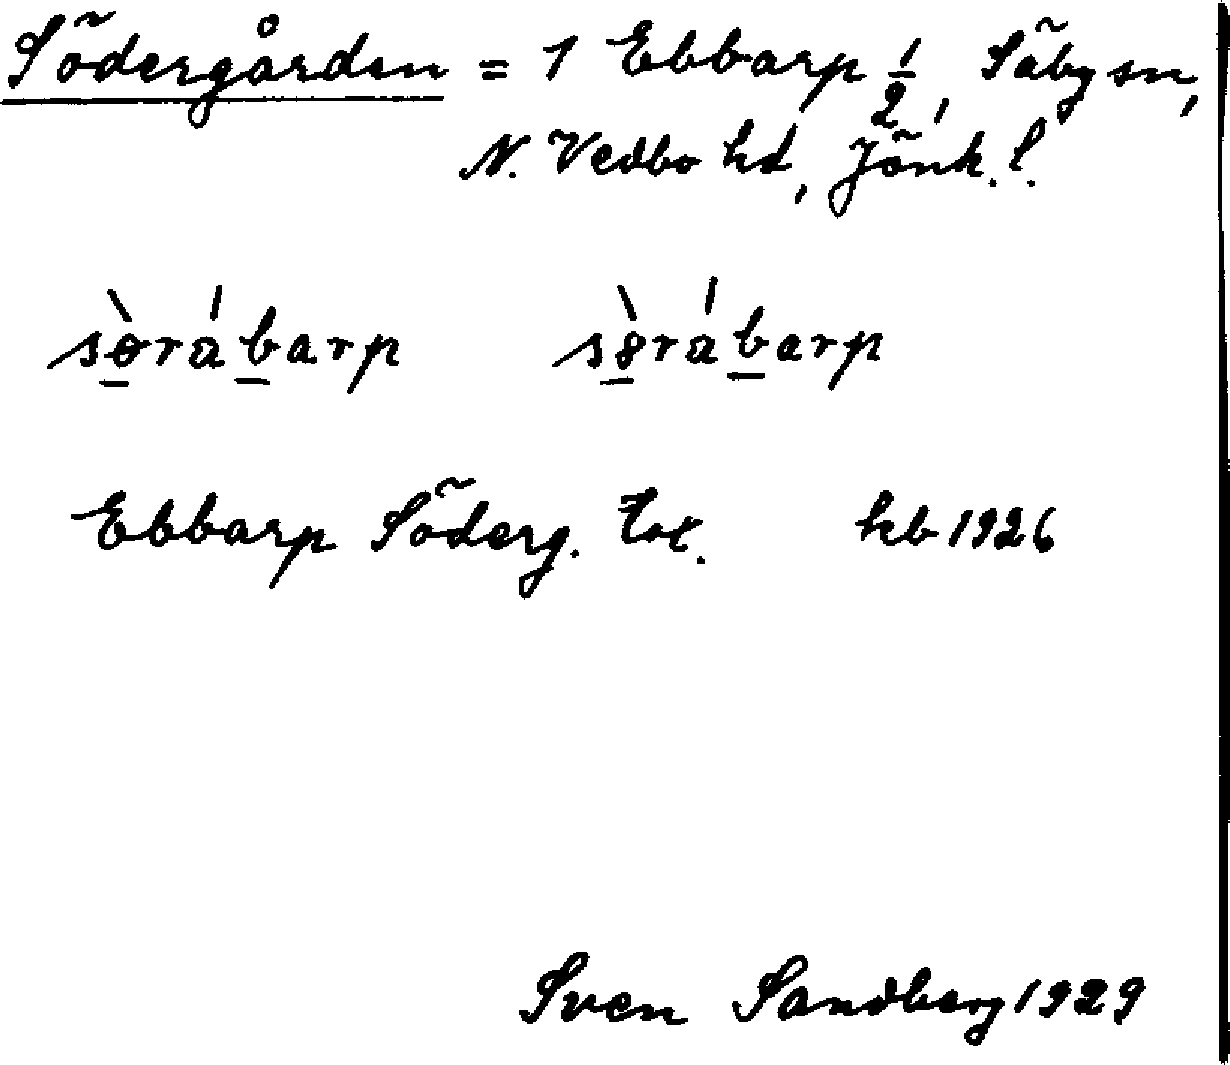 Södergården = 1 Ebbarp 1/2, Säby sn,
N. Vedbo hd, Jönk. l.
sòrábarp sòrábarp
Ebbarp Söderg. kb 1926
Sven Sandberg 1929